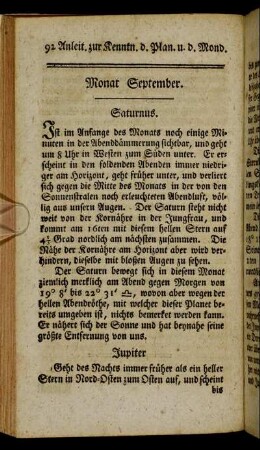 92 Anleit. zur Kenntn. d. Plan. u. d. Mond.
Monat September.
Saturnus.
Ist im Anfange des Monats noch einige Mi-
nuten in der Abenddämmerung sichtbar, und geht
um 8 Uhr in Westen zum Süden unter. Er er-
scheint in den folgenden Abenden immer niedri-
ger am Horizont, geht früher unter, und verliert
sich gegen die Mitte des Monats in der von den
Sonnenstralen noch erleuchteten Abendluft, völ-
lig aus unsern Augen. Der Saturn steht nicht
weit von der Kornähre in der Jungfrau, und
kommt am 16ten mit diesem hellen Stern auf
Grad nordlich am nächsten zusammen. Die
Nähe der Kornähre am Horizont aber wird ver-
hindern, dieselbe mit bloßen Augen zu sehen.
Der Saturn bewegt sich in diesem Monat
ziemlich merklich am Abend gegen Morgen von
19° 8′ bis 22° 31′ ♎, wovon aber wegen der
hellen Abendröthe, mit welcher dieser Planet be-
reits umgeben ist, nichts bemerket werden kann.
Er nähert sich der Sonne und hat beynahe seine
größte Entfernung von uns.
Jupiter
Gehe des Nachts immer früher als ein heller
Stern in Nord-Osten zum Osten auf, und scheint
bis